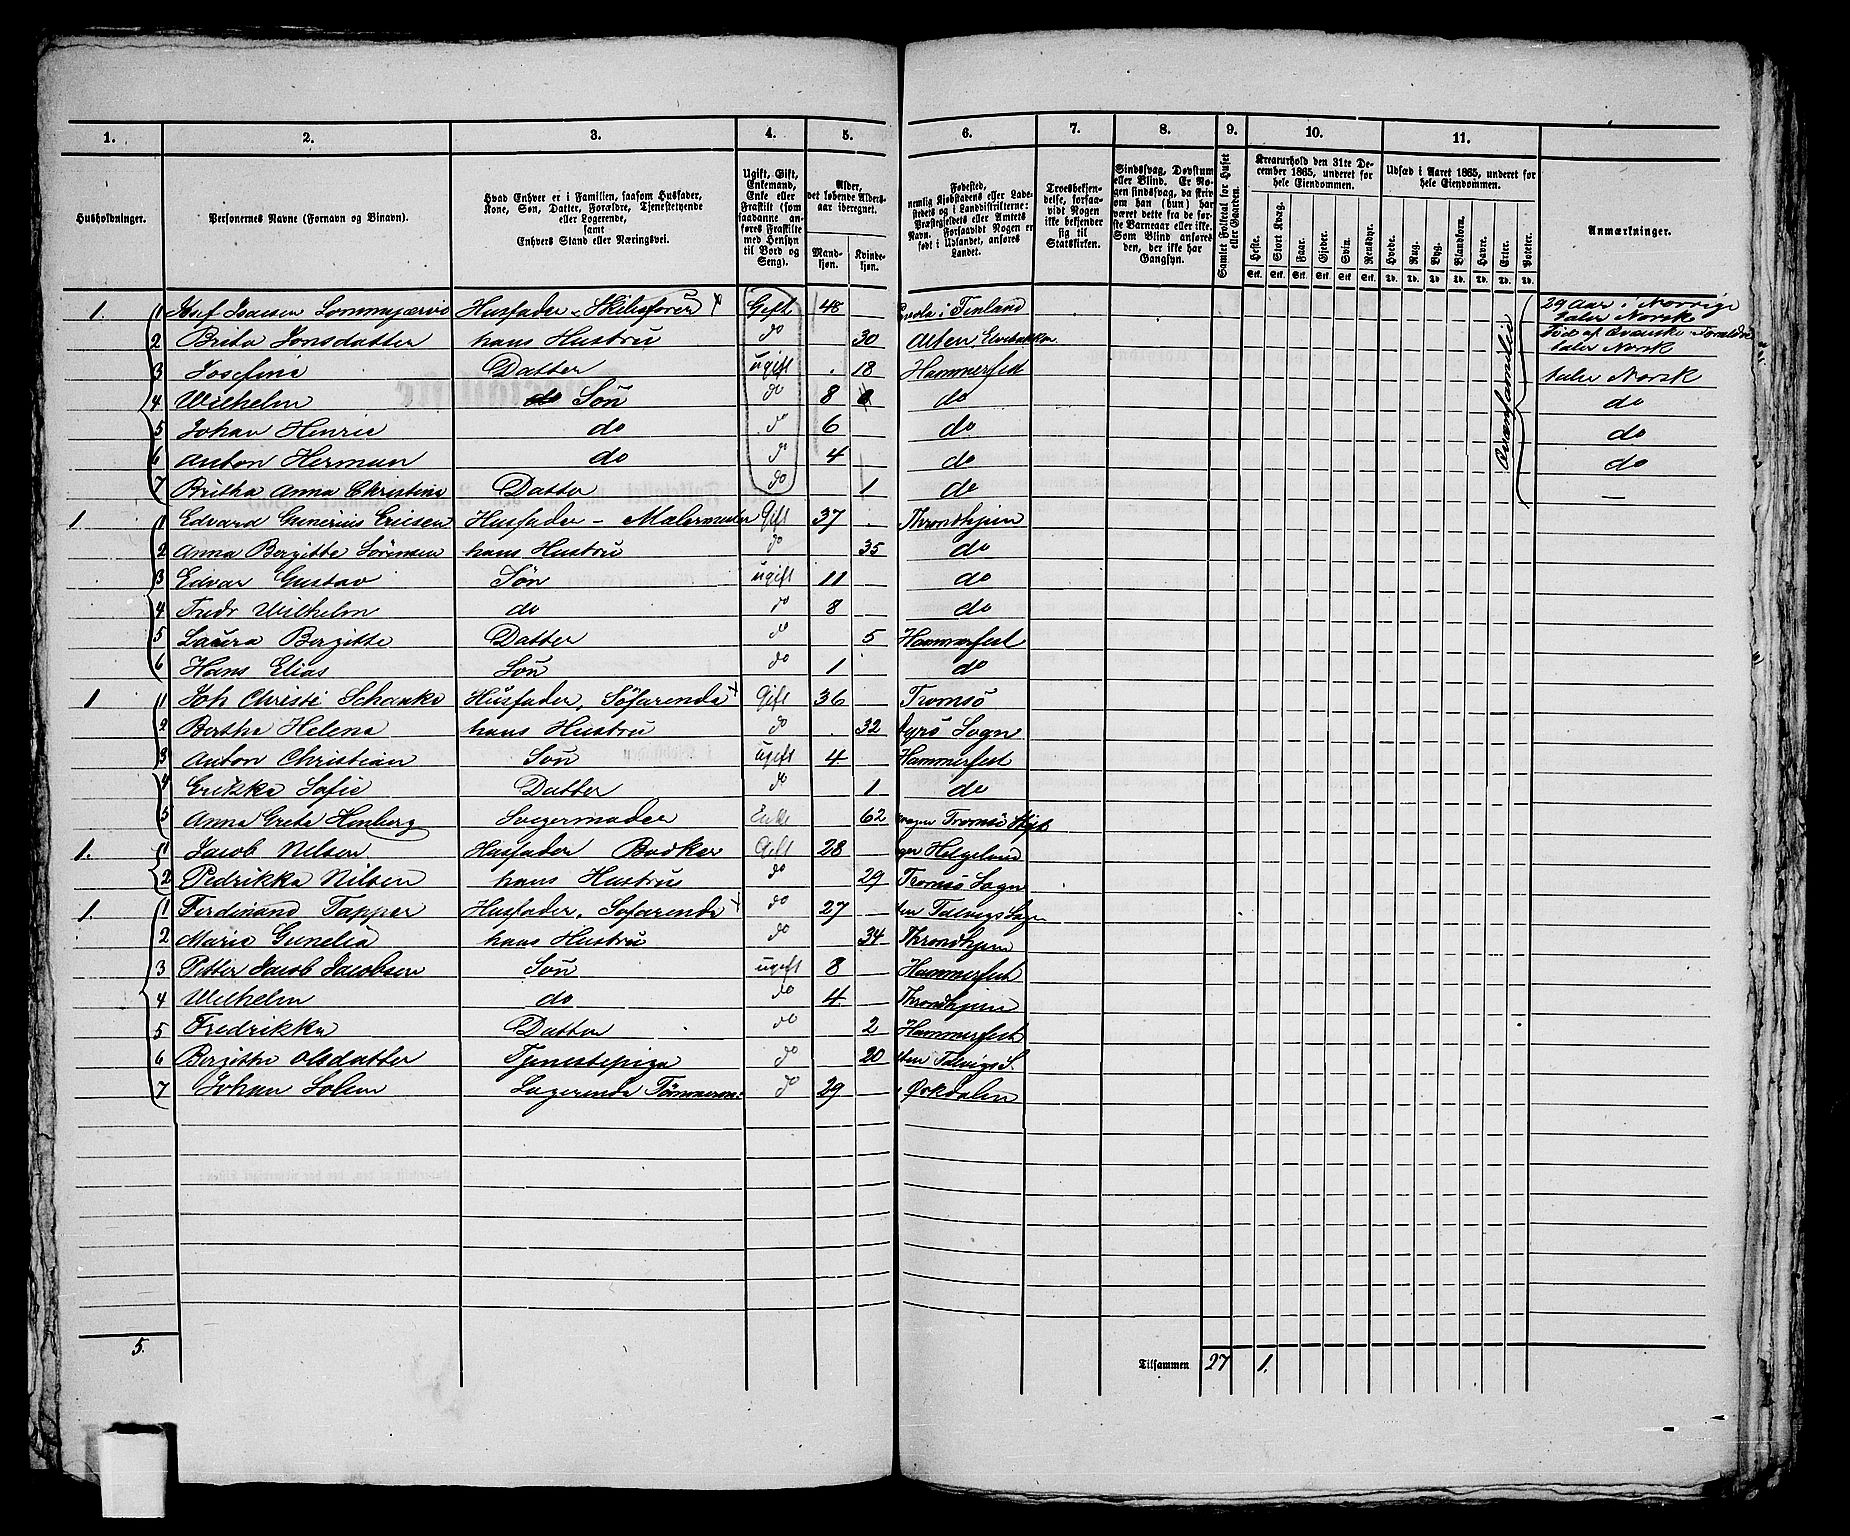 1. 2. 3. 4. 5. 6. 7. 8. 9. 10. 11.
Husholdninger.
Personernes Navne (Fornavn og Binavn).
Hvad Enhver er i Familien, saasom Husfader, Kone, Søn, Datter, Forældre, Tjenestetyende eller Logerende, samt Enhvers Stand eller Næringsvei.
Ugift, Gift, Enkemand, Enke eller Fraskilt (som saadanne anføres Fraskilte med Hensyn til Bord og Seng).
Alder, det løbende Aldersaar iberegnet.
Mandkjøn. Kvindekjøn.
Fødested, nemlig Kjøbstadens eller Ladestedets og i Landdistrikterne: Præstegjeldets eller Amtets Navn. Forsaavidt Nogen er født i Udlandet, anføres Landet.
Troesbekjendelse, forsaavidt Nogen ikke bekjender sig til Statskirken.
Sindssvag, Døvstum eller Blind. Er Nogen sindssvag, da skrives om han (hun) har været dette fra de første Barneaar eller ikke. Som Blind anføres den, der ikke har Gangsyn.
Samlet Folketal for Huset eller Gaarden.
Kreaturhold den 31te December 1865, underet for hele Eiendommen.
Heste. Stort Kvæg. Faar. Gjeder. Svin. Rensdyr.
Stk. Stk. Stk. Stk. Stk. Stk.
Udsæd i Aaret 1865, underet for hele Eiendommen.
Hvede. Rug. Byg. Blandkorn. Havre. Erter. Poteter.
Td. Td. Td. Td. Td. Td. Td.
Anmærkninger.
1. 1 Isaksen Lommajærvi Husfader - Gift 48 i Finland 29 Aar i Norrige taler Norsk
2 Brita Jonsdatter hans Hustru do 30 Alten Elvebakken Född af Qvænske Forældre taler Norsk
3 Josefine Datter ugift 18 Hammerfest taler Norsk
4 Wilhelm Sön do 8 do do
5 Johan Henric do do 6 do do
6 Anton Herman do do 4 do do
7 Britha Anna Christine Datter do 1 do —
Qvænfamilie
1. 1 Edvard Gunerius Ericsen Husfader - Malermester Gift 37 Throndhjem
2 Anna Bergitte Sörensen hans Hustru do 35 do
3 Edvar Gustav Sön ugift 11 do
4 Fredr Wilhelm do do 8 do
5 Laura Bergitte Datter do 5 Hammerfest
6 Hans Elias Sön do 1 do
1 1 Joh Christi Schanke Husfader, Söfarende Gift 36 Tromsö
2 Bertha Helena hans Hustru do 32 Sogn
3 Anton Christian Sön ugift 4 Hammerfest
4 Erikka Sofie Datter do 1 do
5 Anna Greta Henberg Svigermoder Enke 62 Tromsö
1. 1 Jacob Nilsen Husfader Bödker Gift 28 Helgeland
2 Pedrikka Nilsen hans Hustru do 29 Tromsö Sogn
1. 1 Ferdinand Tapper Husfader, Söfarende do 27 Talvigs Sogn
2 Marie Gunelia hans Hustru do 34 Throndhjem
3 Petter Jacob Jacobsen Sön ugift 8 Hammerfest
4 Wilhelm do do 4 Throndhjem
5 Fredrikka Datter do 2 Hammerfest
6 Bergithe Olsdatter Tjenestepige do 20 Talvigs S.
7 Johan Solem Logerende Tömmerm: do 29 Orkdalen
5. Tilsammen 27 1.